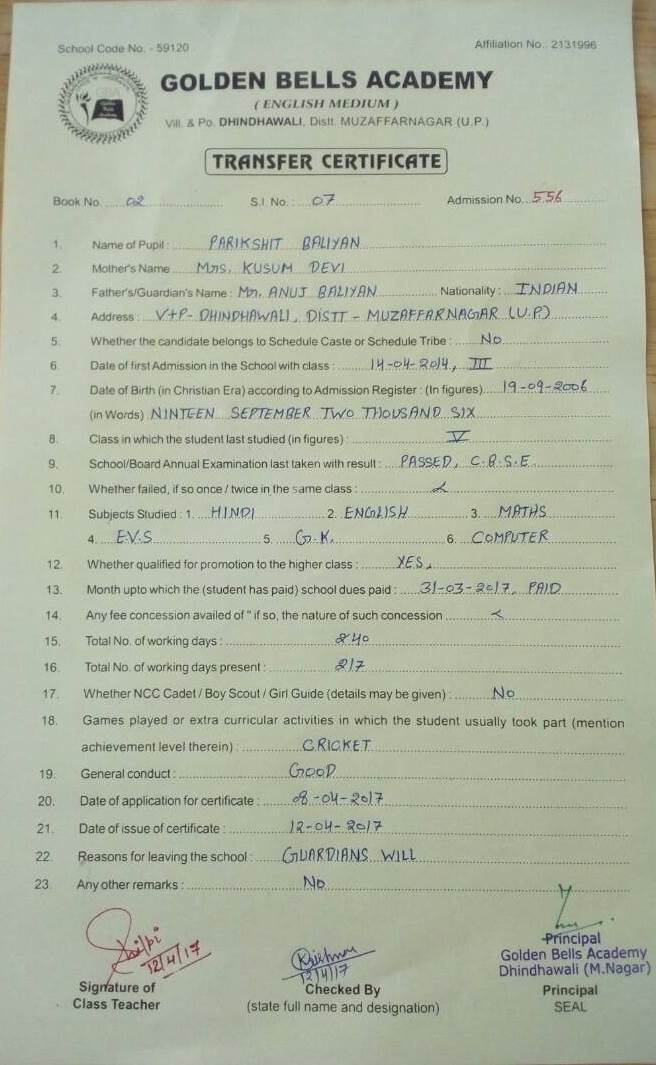 School Code No. - 59120 Affiliation No. 2131996
GOLDEN BELLS ACADEMY
( ENGLISH MEDIUM )
Vill. & Po. DHINDHAWALI, Distt. MUZAFFARNAGAR (U.P.)
TRANSFER CERTIFICATE
Book No. 02 S.I. No. : 07 Admission No. 556
1. Name of Pupil : PARIKSHIT BALIYAN
2. Mother's Name Mrs. KUSUM DEVI
3. Father's/Guardian's Name : Mr. ANUJ BALIYAN Nationality : INDIAN
4. Address : V+P- DHINDHAWALI, DISTT - MUZAFFARNAGAR (U.P)
5. Whether the candidate belongs to Schedule Caste or Schedule Tribe : No
6. Date of first Admission in the School with class : 14-04-2014, III
7. Date of Birth (in Christian Era) according to Admission Register : (In figures) 19-09-2006
(in Words) NINTEEN SEPTEMBER TWO THOUSAND SIX
8. Class in which the student last studied (in figures) : V
9. School/Board Annual Examination last taken with result : PASSED, C.B.S.E.
10. Whether failed, if so once / twice in the same class :
11. Subjects Studied : 1. HINDI 2. ENGLISH 3. MATHS
4. E.V.S 5. G.K. 6. COMPUTER
12. Whether qualified for promotion to the higher class : YES.
13. Month upto which the (student has paid) school dues paid : 31-03-2017, PAID
14. Any fee concession availed of " if so, the nature of such concession
15. Total No. of working days : 240
16. Total No. of working days present : 217
17. Whether NCC Cadet / Boy Scout / Girl Guide (details may be given) : No
18. Games played or extra curricular activities in which the student usually took part (mention
achievement level therein) : CRICKET
19. General conduct : GOOD
20. Date of application for certificate : 08-04-2017
21. Date of issue of certificate : 12-04-2017
22. Reasons for leaving the school : GUARDIANS WILL
23. Any other remarks : No
12/4/17
12/4/17
Principal
Golden Bells Academy
Dhindhawali (M.Nagar)
Signature of Class Teacher
Checked By
(state full name and designation)
Principal
SEAL